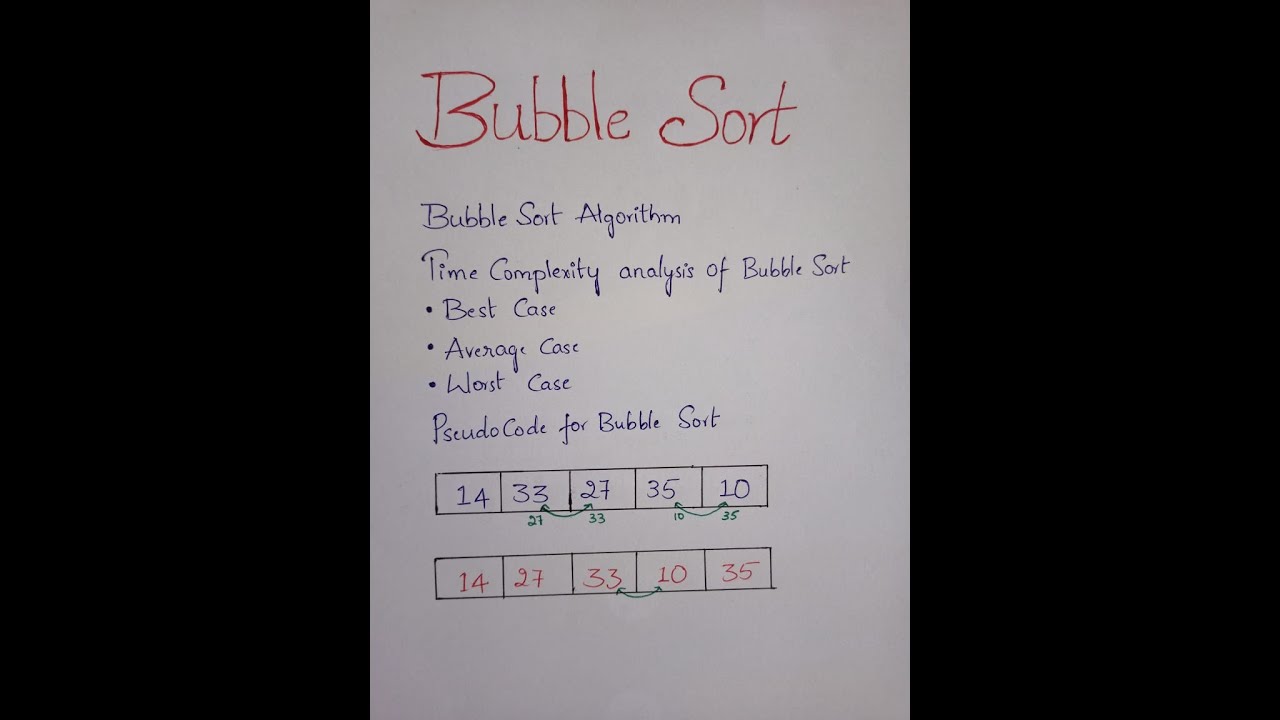 Bubble Sort
Bubble Sort Algorithm
Time Complexity analysis of Bubble Sort
• Best Case
• Average Case
• Worst Case
PseudoCode for Bubble Sort
14 33 27 35 10
27 33 10 35
14 27 33 10 35